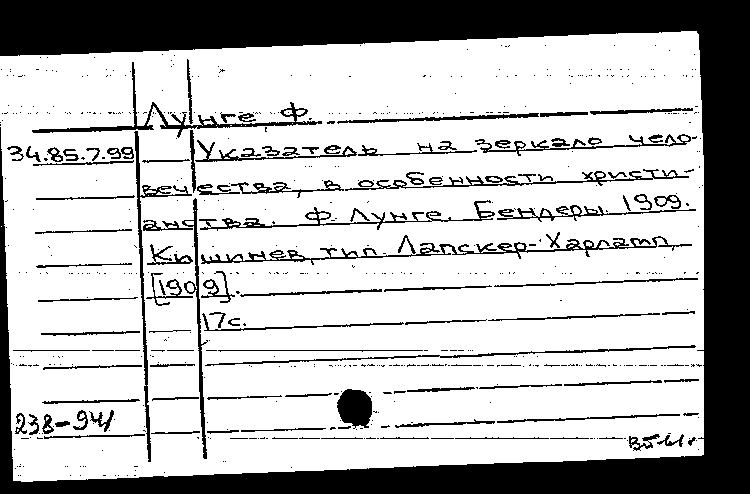 Лунге, Ф.
34.85.7.99 Указатель на зеркало чело-
вечества, в особенности христи-
анства. Ф. Лунге. Бендеры. 1909.
Кишинев, тип. Лапскер-Харлатп,
[1909].
17с.
238-941